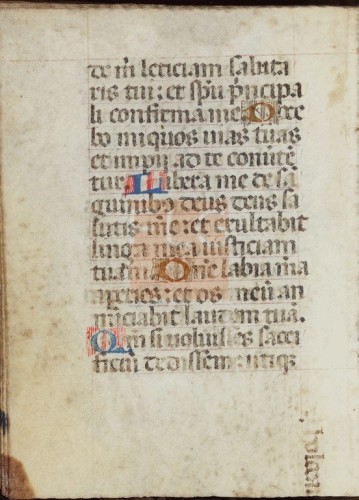 de m̃ leticiam saluta
ris tui: et spũ p̃ncipa
li confirma me Doce
bo iniquos uias tuas
et impii ad te conuẽte
tur Libera me de sã
guinibꝰ deus deus sa
lutis mẽe: et exultabit
lingua mea iusticiam
tuam Dñe labia mẽa
aperies: et os meũ an
nũciabit laudem tuam.
Qm̃ si uoluisses sacri
ficiũ dedissem: utiqꝫ